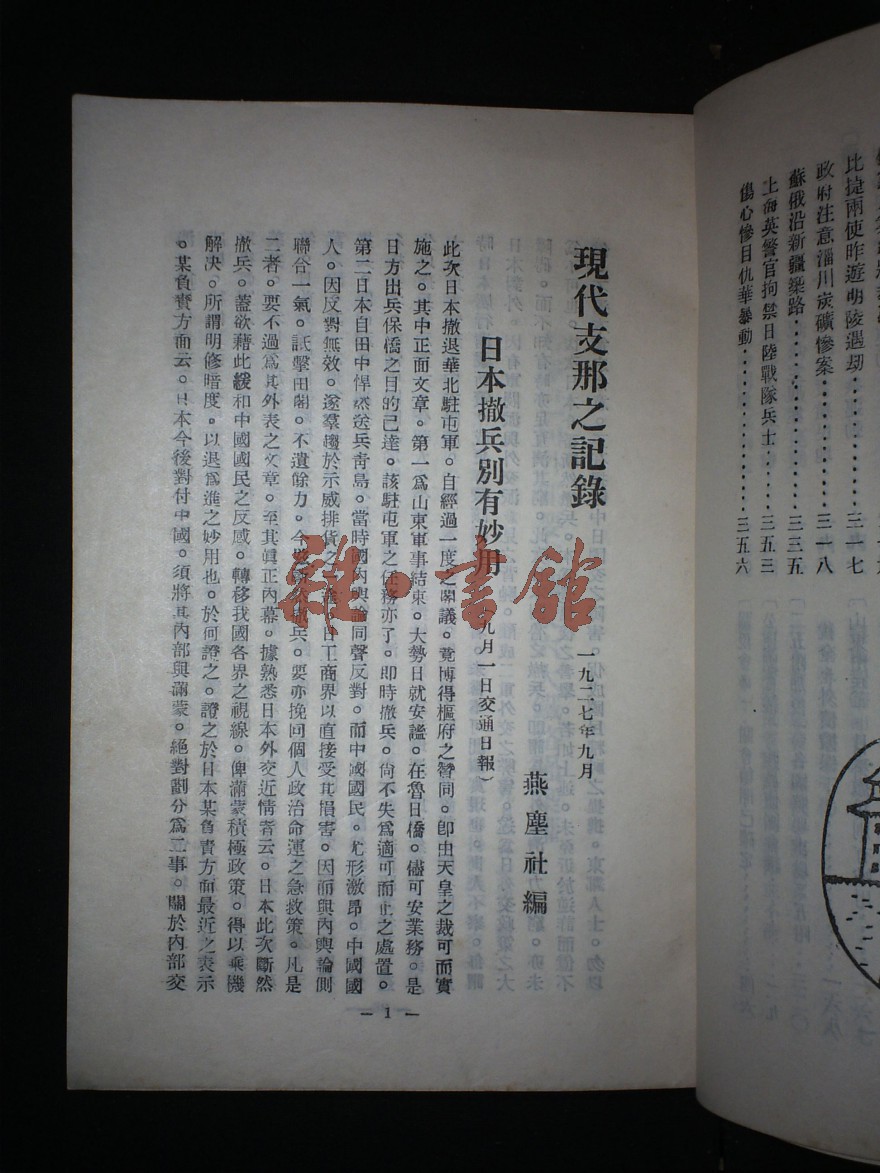 比捷兩使昨遊明陵遇劫‥‥‥‥三一七
政府注意淄川炭礦慘案‥‥‥‥三一八
蘇俄沿新疆築路‥‥‥‥‥‥‥三三五
上海英警官拘禁日陸戰隊兵士‥‥‥三五三
傷心慘目仇華暴動‥‥‥‥‥‥三五六
現代支那之記錄
一九二七年九月
燕塵社編
日本撤兵別有妙用
九月一日交通日報）
此次日本撤退華北駐屯軍。自經過一度之閣議。竟博得樞府之贊同。卽由天皇之裁可而實
施之。其中正面文章。第一爲山東軍事結束。大勢日就安謐。在魯日僑。儘可安業務。是
日方出兵保僑之目的已達。該駐屯軍之任務亦了。即時撤兵。尙不失爲適可而止之處置。
第二日本自田中悍然送兵青島。當時國內輿論同聲反對。而中國國民。尤形激昂。中國國
人。因反對無效。遂羣趨於示威排貨之一途。日工商界以直接受其損害。因而與內輿論則
聯合一氣。詆擊田閣。不遺餘力。今兹撤兵。要亦挽回個人政治命運之急救策。凡是
二者。要不過爲其外表之文章。至其眞正內幕。據熟悉日本外交近情者云。日本此次斷然
撤兵。蓋欲藉此緩和中國國民之反感。轉移我國各界之視線。俾滿蒙積極政策。得以乘機
解决。所謂明修暗度。以退爲進之妙用也。於何證之。證之於日本某負責方面最近之表示
。某負責方面云。日本今後對付中國。須將其內部與滿蒙。絕對劃分爲二事。關於內部交
— 1 —
雜·書館